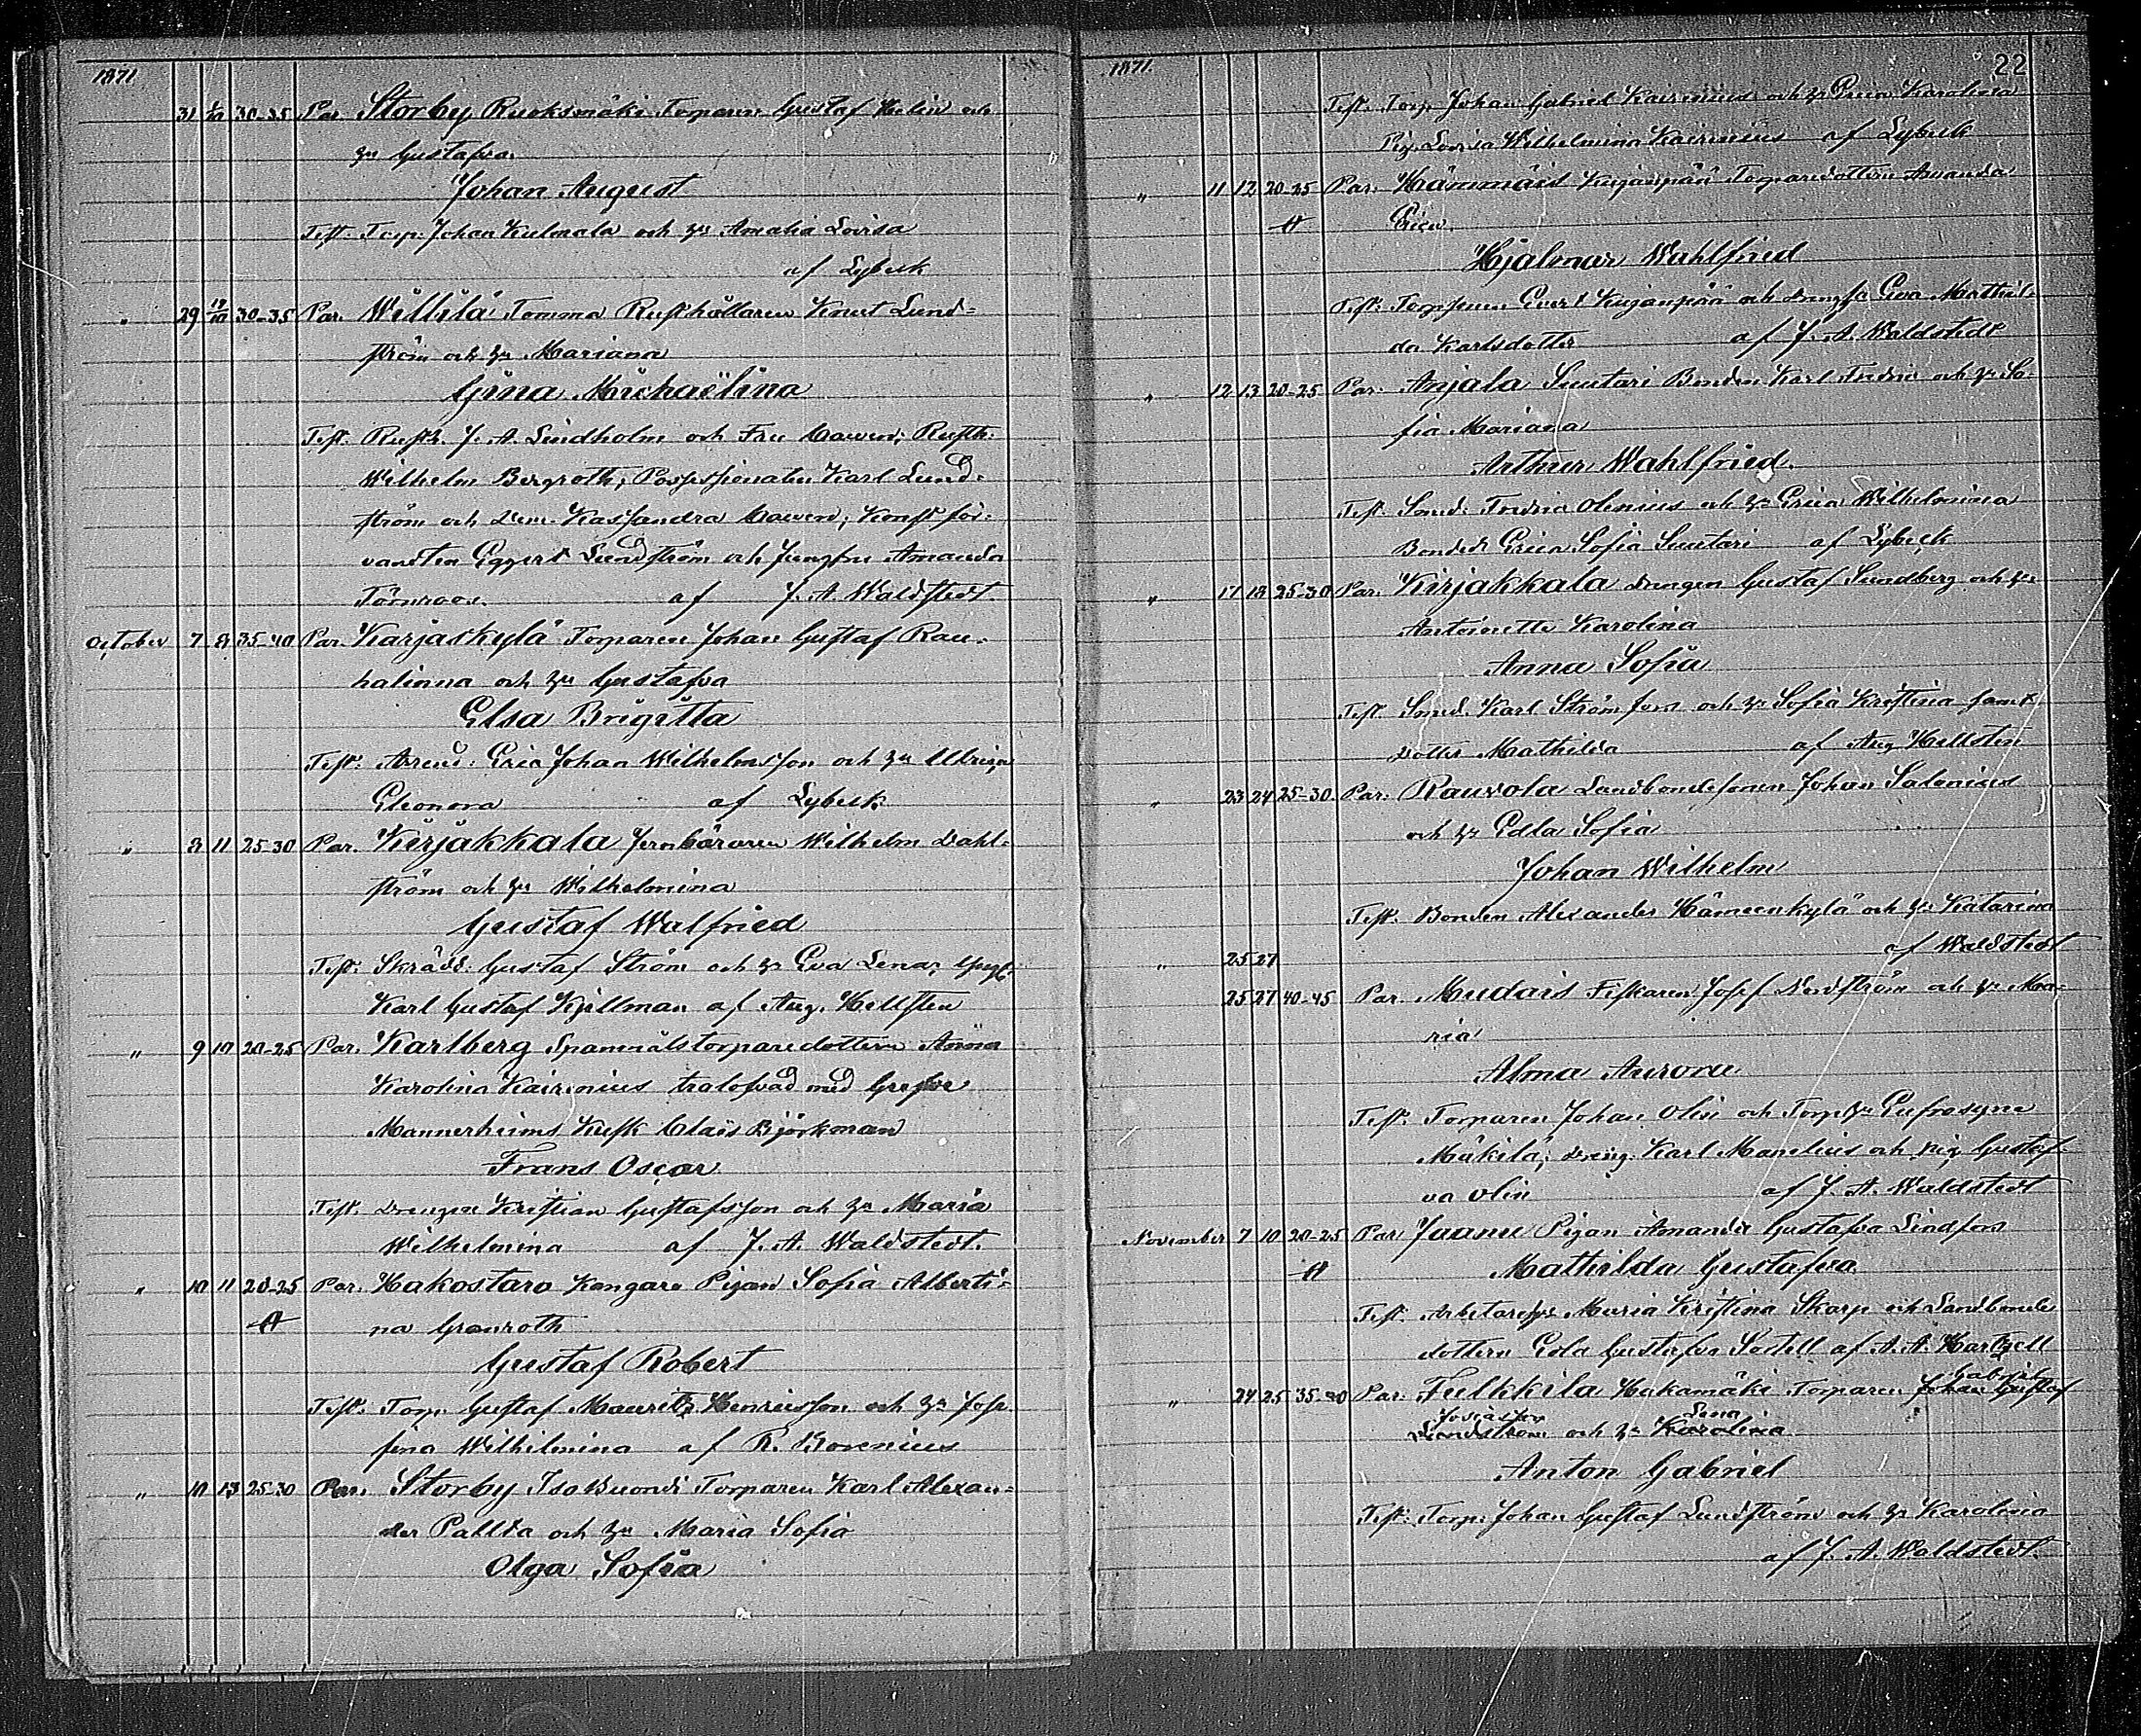 1871
31 1/10 30-35 Par. Storby Ruoksmäki Torparen Gustaf Helin och
hu Gustafva.
Johan August
Test. Torp. Johan Kulmala och hu Amalia Lovisa
af Lybeck
" 29 19/10 30-35 Par. Willilä Tomma Rusthållaren Knut Lund-
ström och hu Mariana
Gina Michaëlina
Test. Rusth. J. A. Lindholm och Fru ; Rusth.
Wilhelm Bergroth, Possessionaten Karl Lund-
ström och Dem. Kassandra ; Konstför-
vandten Eggert Lundström och Jungfru Amanda
Törnroos. af J. A. Waldstedt.
October 7 8 35-40 Par. Karjaskylä Torparen Johan Gustaf Rau-
halinna och hu Gustafva
Elsa Brigitta
Test. Arend. Eric Johan Wilhelmsson och hu Ulrica
Eleonora af Lybeck
" 8 11 25-30 Par. Kirjakkala Jernbäraren Wilhelm Dahl-
ström och hu Wilhelmina
Gustaf Walfried
Test. Skrädd. Gustaf Ström och hu Eva Lena,
Karl Gustaf Kjellman af Aug. Hellsten
" 9 10 20-25 Par. Karlberg Spanmålstorparedottern Anna
Karolina Kairenius trolofvad med Grefve
Mannerheims Kusk Claës Björkman
Frans Oscar
Test. Drengen Kristian Gustafsson och hu Maria
Wilhelmina af J. A. Waldstedt.
" 10 11 20-25 Par. Hakostaro Kangare Pigan Sofia Alberti-
na Granroth
Gustaf Robert
Test. Torp. Gustaf Mauritz Henriksson och hu Jose-
fina Wilhelmina af R. Borenius
" 10 13 25-30 Par. Storby Isobuondi Torparen Karl Alexan-
der Pallda och hu Maria Sofia
Olga Sofia
1871. 22
Test. Torp. Johan Gabriel Kairenius och hu Erica Karolina
Pig. Lovisa Wilhelmina Kairenius af Lybeck
" 11 12 20-25 Par. Hämmäis Kujanpää Torparedottern Amanda
Erica.
Hjalmar Wahlfried
Test. Torpsonen Evert Kujanpää och Eva Mathil-
da Karlsdotter af J. A. Waldstedt
" 12 13 20-25 Par. Anjala Suutari Bonden Karl Fredric och hu So-
fia Mariana
Arthur Wahlfried.
Test. Smed. Fredric Olenius och hu Erica Wilhelmina
Bonded. Erica Sofia Suutari af Lybeck
" 17 18 25-30 Par. Kirjakkala Drengen Gustaf Sundberg och hu
Antoinette Karolina
Anna Sofia
Test. Smed. Karl Strömfors och hu Sofia Kristina samt
Dotter Mathilda af Aug Hellsten
" 23 24 25-30 Par. Rauvola Landbondesonen Johan Salonius
och hu Edla Sofia
Johan Wilhelm
Test. Bonden Alexander Hämeenkylä och hu Katarina
af Waldstedt
" 25 27
25 27 40-45 Par. Mudais Fiskaren Josef Nordström och hu Ma-
ria
Alma Aurora
Test. Torparen Johan Olin och Torp.hu Eufrosyne
Mäkilä; Dreng. Karl Manelius och Pig. Gustaf-
va Olin af J. A. Waldstedt
November 7 10 20-25 Par. Juanu Pigan Amanda Gustafva Lindfors
Mathilda Gustafva
Test. Arbetarehu Maria Kristina Skarp och Landbonde-
dottern Edla Gustafva Sodell af A. A. Hartzell
Gabriel
" 24 25 35-40 Par. Fulkkila Hakamäki Torparen Johan Gustaf
Josiasson Lena
Lindström och hu Karolina
Anton Gabriel
Test. Torp. Johan Gustaf Lundström och hu Karolina
af J. A. Waldstedt.